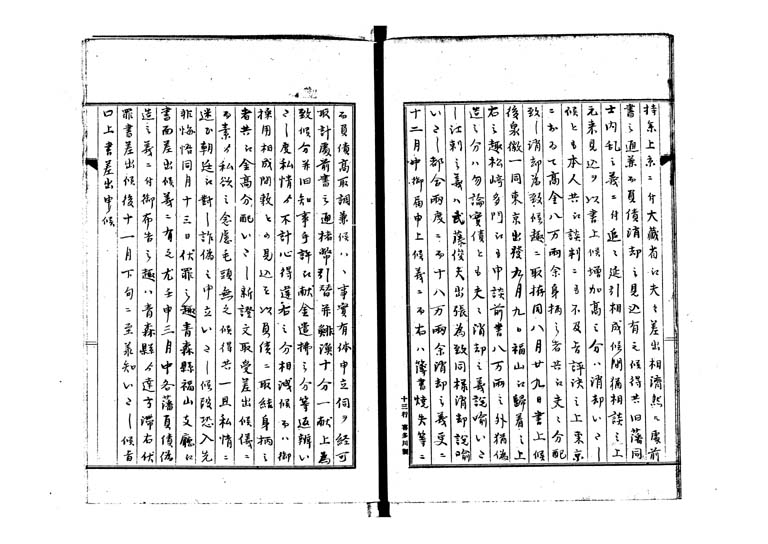 持参上京ニ付大蔵省江夫々差出相済然ル処前
書之通兼而負債消却之見込有之候得共旧藩同
士内乱之義ニ付追々延引相成候間猶相談之上
元来見込ヲ以書上候増加高之分ハ消却いたし
候とも本人共江談判ニも不及旨評決之上東京
ニおゐて高金八万両余身柄之者共江夫々分配
致し消却為致候趣ニ取拵同八月廿九日書上候
後泉徹一同東京出發九月九日福山江歸着之上
右之趣松崎多門江も申談前書八万両之外猶偽
造之分ハ勿論實債とも夫々消却之義説諭いたし
江刺之義ハ武藤俊夫出張為致同様消却説諭
いたし都合両度ニ而十八万両余消却之義更ニ
十二月中御届申上候義ニ而右ハ簿書焼失等ニ
十三行 喜多川製
而負債高取調兼候ハヽ事實有体申立伺ヲ経可
取計處前書之通楮幣引替并鯡漁十分一献上為
致候分并旧知事手許江献金遣拂之分等返辨い
たし度私情ヨリ不計心得違右之分相減候而ハ御
採用相成間敷との見込ヲ以負債ニ取結身柄之
者共江金高分配いたし新證文取受差出候儀ニ
而素ヨリ私欲之念慮毛頭無之候得共一旦私情ニ
迷ひ朝廷江對し詐偽之申立いたし候段恐入先
非悔悟同月十三日伏罪之趣青森縣福山支廳江
書面差出候義ニ有之尤壬申三月中各藩負債偽
造之義ニ付御布告之趣ハ青森縣ヨリ達方滞右伏
罪書差出候後十一月下旬ニ至承知いたし候旨
口上書差出申候